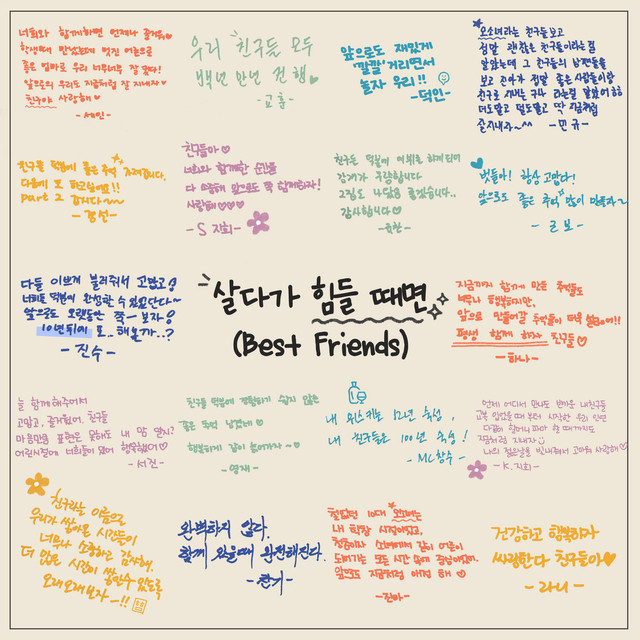 너희와 함께하면 언제나 즐거워
학생때 만났는데 멋진 어른으로
좋은 엄마로 우리 너무너무 잘 컸다!
앞으로의 우리도 지금처럼 잘 지내자
친구야 사랑해
-세인-
우리 친구들 모두
백년 만년 건행
-교훈-
앞으로도 재밌게
'깔깔' 거리면서
놀자 우리!!
-덕인-
오소녀라는 친구들 보고
정말 괜찮은 친구들이라는걸
알았는데 그 친구들의 남편들을
보고 끈끈하 정말 좋은 사람들이랑
친구로 지내는 구나 라는걸 알았어 ㅎㅎ
더도말고 덜도말고 딱 지금처럼
잘 지내자~^^
-민규-
친구들 덕분에 좋은 추억 가져갑니다.
다음에 또 하고싶어요!!
part 2 갑시다~~
-경선-
친구들아
너희와 함께한 순간들
다 소중해 앞으로도 쭉 함께하자!
사랑해
-S 지희-
친구들 덕분에 이 뷔를 하게되어
감개가 무량합니다
2집도 나왔음 좋겠습니다..
감사합니다
벗들아! 항상 고맙다!
앞으로도 좋은 추억 많이 만들자~
-근보-
다들 이쁘게 불러줘서 고맙고
너희들 덕분에 완성할 수 있었단다~
앞으로도 오랫동안 쭉- 보자!
10년뒤에 또.. 해볼까..?
-진수-
살다가 힘들 때면
(Best Friends)
지금까지 함께 만든 추억들도
너무나 행복하지만,
앞으로 만들어갈 추억들이 더욱 설레어!!
평생 함께 하자 친구들
-하나-
늘 함께해주어서
고맙고, 즐거웠어, 친구들
마음만큼 표현은 못해도 내 맘 알지?
어린시절에 너희들이 있어 행복했었어
-서진-
친구들 덕분에 경험하기 쉽지 않은
좋은 추억 남겼네
행복하게 같이 늙어가자~
-영재-
내 위스키는 12년 숙성,
내 친구들은 100년 숙성!
-MC창수-
언제 어디서 만나도 반가운 내친구들
교복 입었을때부터 시작한 우리 인연
다같이 할머니 파마 할 때까지도
지금처럼 지내자
나의 젊은날을 빛내줘서 고마워 사랑해
-K.지희-
친구라는 이름으로
우리가 쌓아온 시간들이
너무나 소중하고 감사해.
더 많은 시간이 쌓일수 있도록
오래오래보자-!!
완벽하지 않다.
함께 있을때 완전해진다.
-찬기-
철없던 10대 오소녀는
내 학창 시절이었고,
청춘이와 소녀에게서 같이 어른이
되어가는 모든 시간 속에 함께여.
앞으로도 지금처럼 애정 해
-진아-
건강하고 행복하라
싸랑한다 친구들아
-라니-